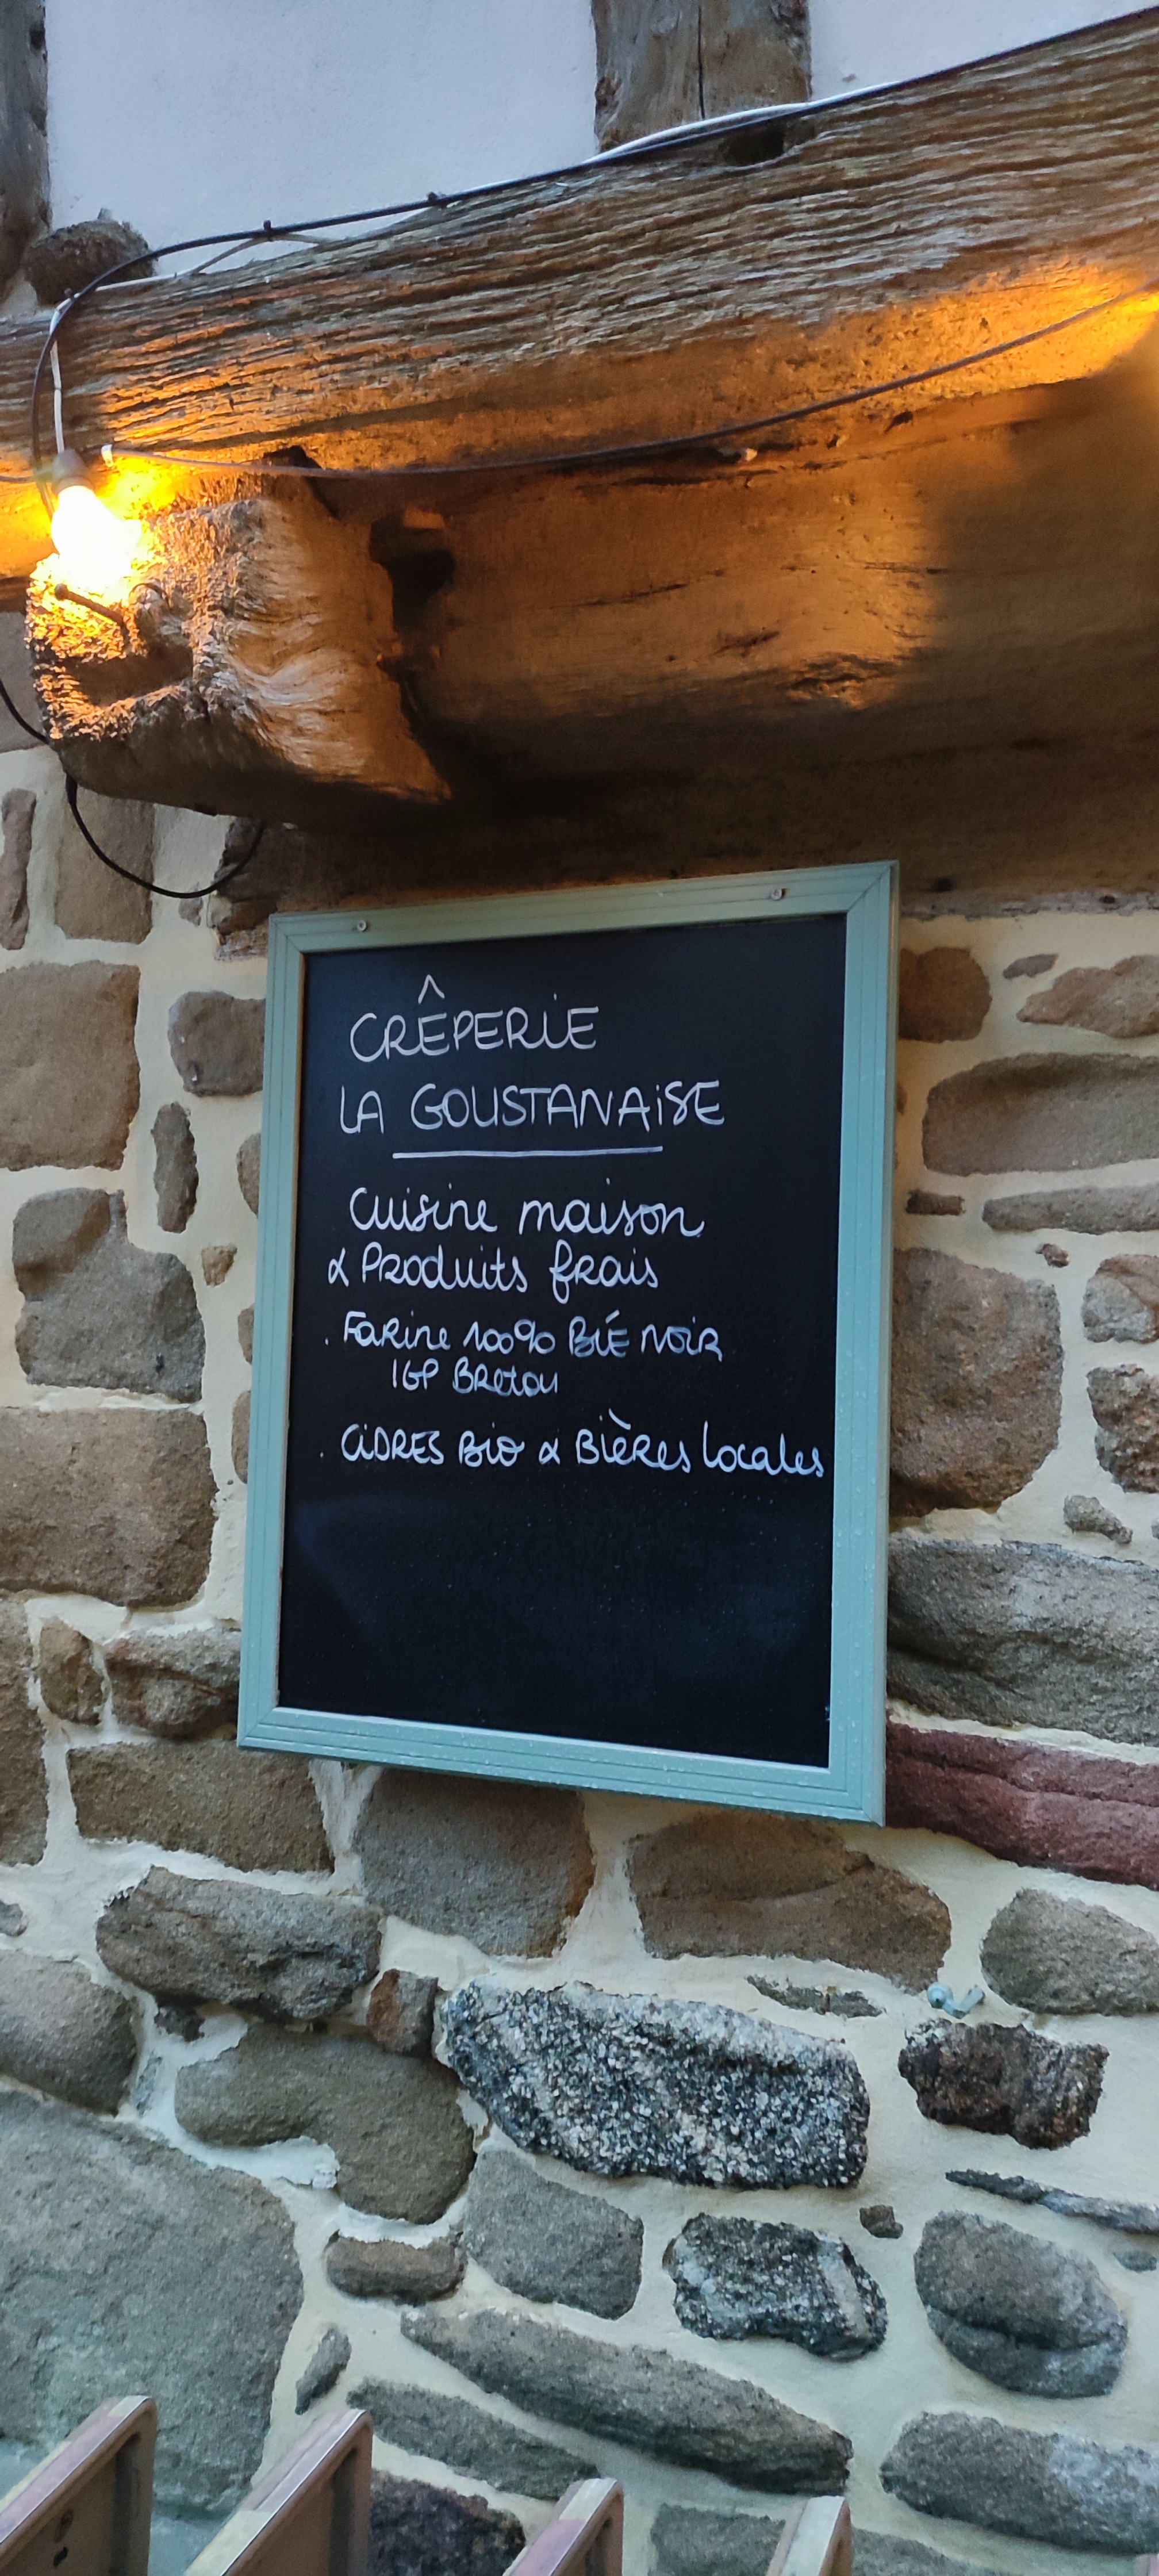 CRÊPERIE
LA GOUSTANAISE
Cuisine maison
& Produits frais
. Farine 100% BLÉ NOIR
IGP Breton
. CIDRES BIO & Bières locales